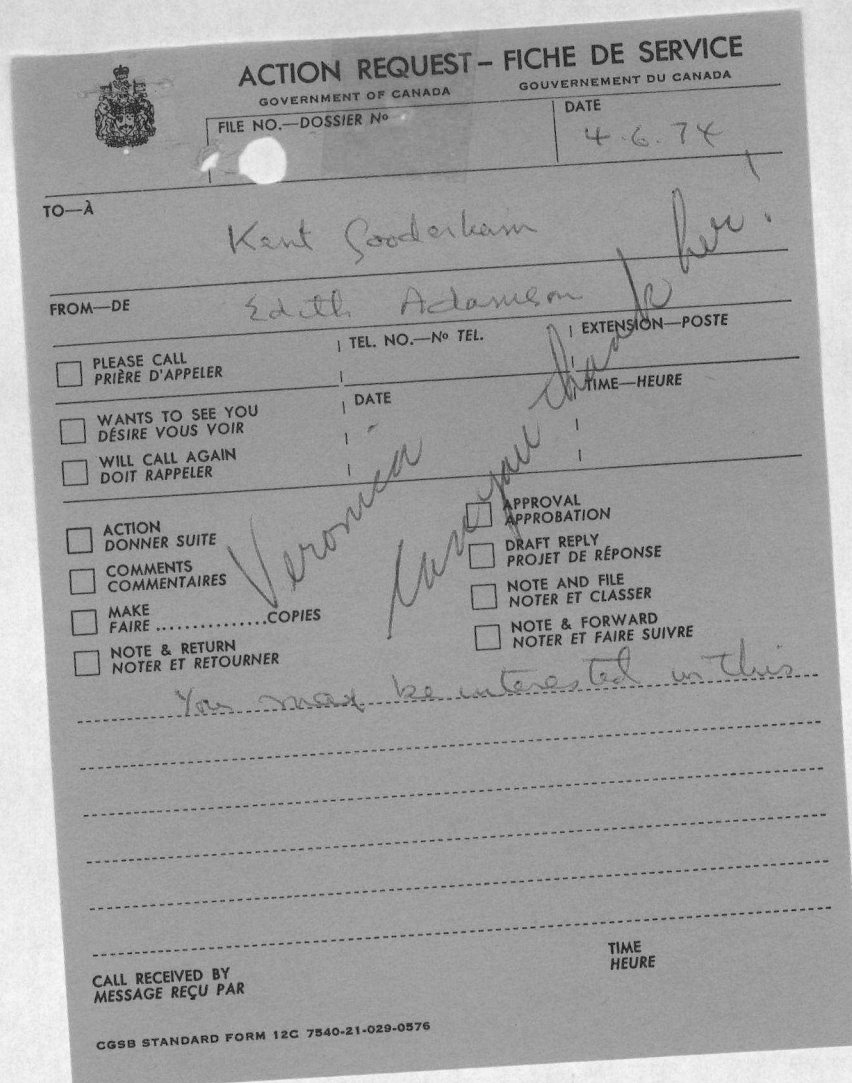 ACTION REQUEST – FICHE DE SERVICE
GOVERNMENT OF CANADA GOUVERNEMENT DU CANADA
FILE NO.—DOSSIER Nº
DATE
4.6.74
TO—À
Kent Gooderham
FROM—DE
Edith Adamson
PLEASE CALL
PRIÈRE D'APPELER
TEL. NO.—Nº TEL.
EXTENSION—POSTE
WANTS TO SEE YOU
DÉSIRE VOUS VOIR
DATE
TIME—HEURE
WILL CALL AGAIN
DOIT RAPPELER
Veronica
Can you thank her!
ACTION
DONNER SUITE
COMMENTS
COMMENTAIRES
MAKE
FAIRE ...............COPIES
NOTE & RETURN
NOTER ET RETOURNER
APPROVAL
APPROBATION
DRAFT REPLY
PROJET DE RÉPONSE
NOTE AND FILE
NOTER ET CLASSER
NOTE & FORWARD
NOTER ET FAIRE SUIVRE
You may be interested in this
CALL RECEIVED BY
MESSAGE REÇU PAR
TIME
HEURE
CGSB STANDARD FORM 12C 7540-21-029-0576